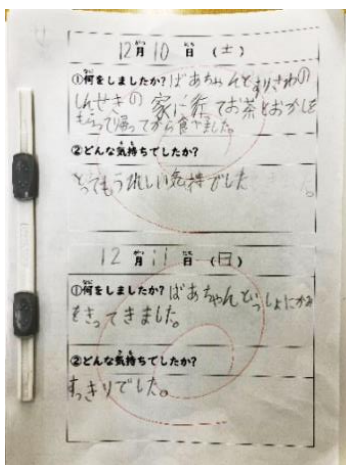 12月10日(土)
①何をしましたか?ばあちゃんとすりさわの
しんせきの家に行てお茶とおかしを
もらって帰ってから食べました。
②どんな気持ちでしたか?
とってもうれしい気持でした。
12月11日(日)
①何をしましたか?ばあちゃんといっしょにかみ
をきってきました。
②どんな気持ちでしたか?
すっきりでした。